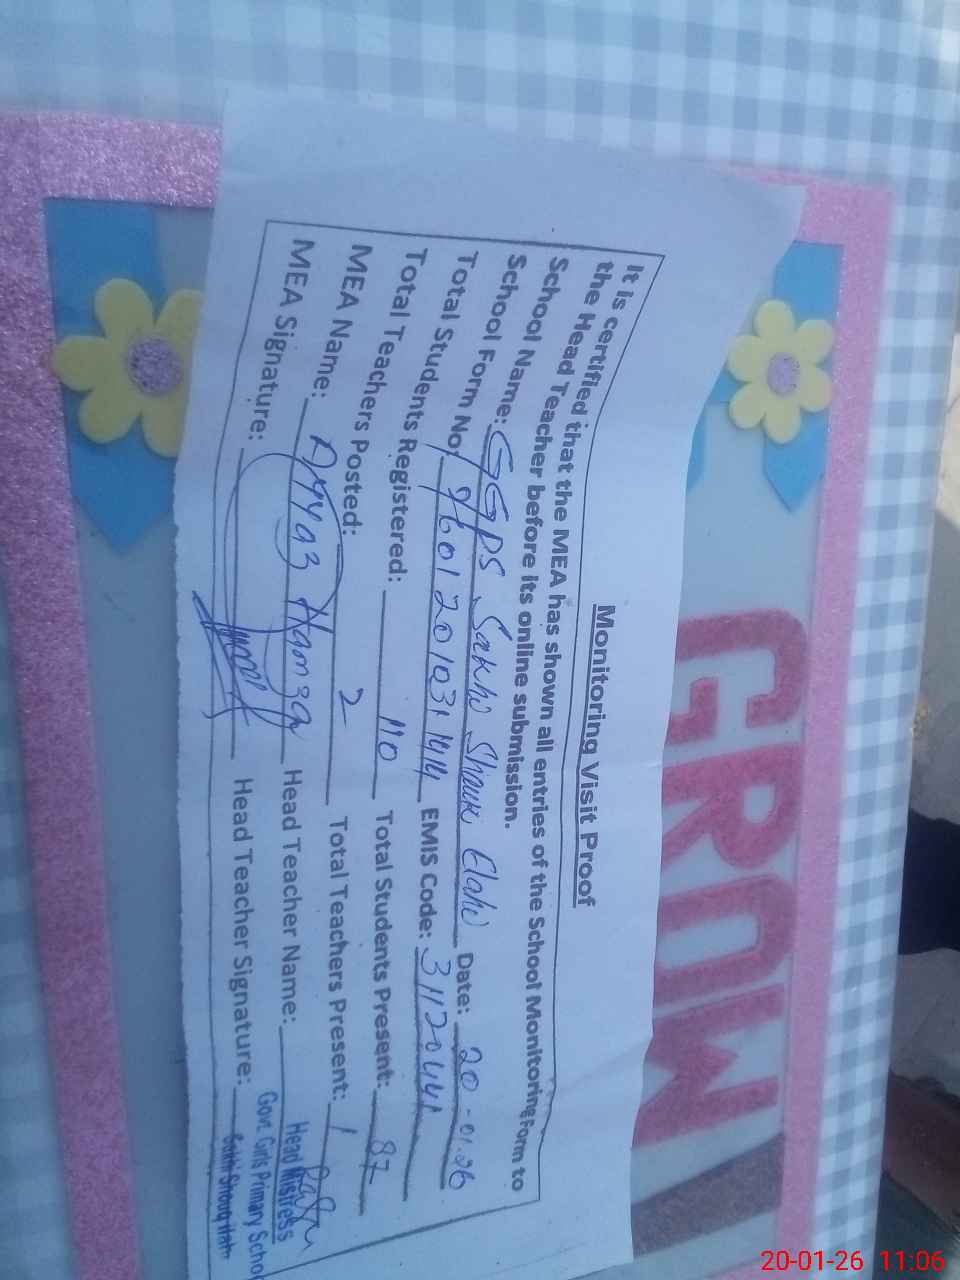 GROW
Monitoring Visit Proof
It is certified that the MEA has shown all entries of the School Monitoring Form to
the Head Teacher before its online submission.
School Name: GGPS Sakhi Shauk Elahi Date: 20-01-26
School Form No: 9601201031414 EMIS Code: 31120441
Total Students Registered: 110 Total Students Present: 87
Total Teachers Posted: 2 Total Teachers Present: 1
MEA Name: Ayyaz Hamza Head Teacher Name:
MEA Signature: Head Teacher Signature:
Head Mistress
Govt. Girls Primary Schoo
20-01-26 11:06